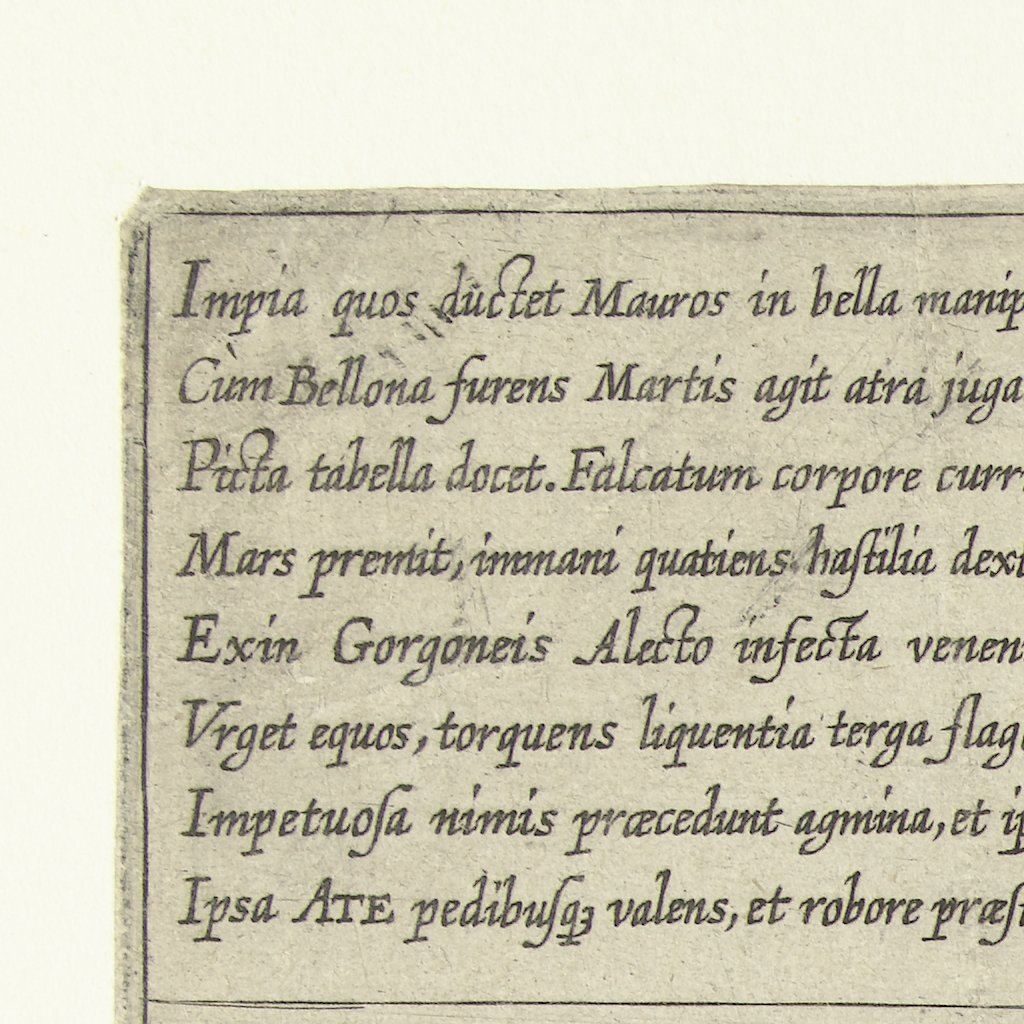 Impia quos ductet Mauros in bella manip
Cùm Bellona furens Martis agit atra juga
Picta tabella docet. Falcatum corpore curr
Mars premit, immani quatiens haſtilia dext
Exin Gorgoneis Alecto infecta venen
Vrget equos, torquens liquentia terga flag
Impetuoſa nimis præcedunt agmina, et ip
Ipsa ATE pedibuſq́ꝫ valens, et robore præſt